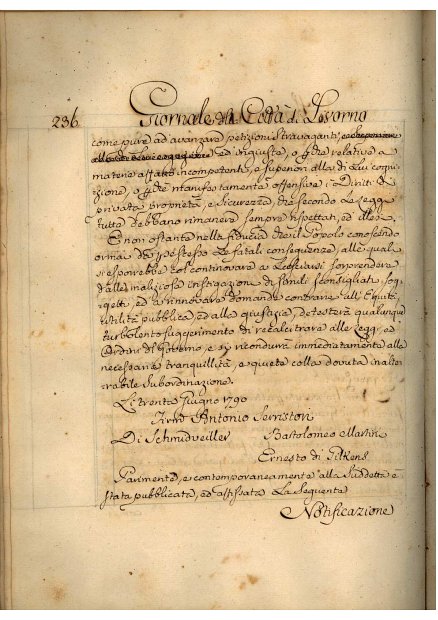 236
Giornale della Città di Livorno
come pure ad avanzare petizioni stravaganti,
ed ingiuste, o pure relative a
materie affatto incompetenti, e superiori alla di Lui cogni-
zione, o pure manifestamente offensive i Diritti di
privata proprietà, e Sicurezza, che secondo le Leggi
tutte debbano rimanere sempre rispettati, ed illesi.
E non ostante nella fiducia che il Popolo conoscendo
ormai da per se stesso Le fatali conseguenze, alle quali
si esporrebbe col continovare a Lasciarsi sorprendere
dalle maliziose instigazioni di simili sconsigliati sog-
getti, ed a rinnovare domande contrarie all'Equità,
utilità pubblica, ed alla giustizia, detesterà qualunque
turbolento suggerimento di recalcitrare alle Leggi, ed
Ordini del Governo, e si ricondurrà immediatamente alla
necessaria tranquillità, e quiete colla dovuta inalte-
rabile Subordinazione.
Li trenta Giugno 1790
Firm. Antonio Serristori
De Schmidveiller Bartolomeo Martini
Ernesto di Gilkens
Parimente, e contemporaneamente alla Suddetta è
stata pubblicata, ed affissata La seguente
Notificazione